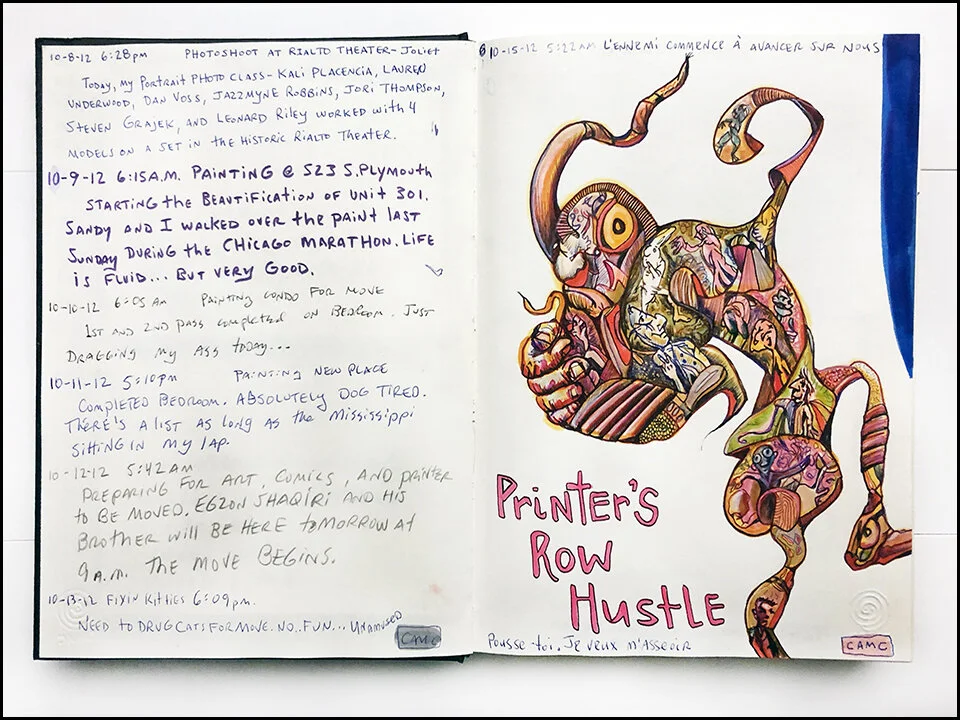 10-8-12 6:28pm PHOTOSHOOT AT RIALTO THEATER-JOLIET
TODAY, MY PORTRAIT PHOTO CLASS-KALI PLACENCIA, LAUREN
UNDERWOOD, DAN VOSS, JAZZMYNE ROBBINS, JORI THOMPSON,
STEVEN GRAJEK, AND LEONARD RILEY WORKED WITH 4
MODELS ON A SET IN THE HISTORIC RIALTO THEATER.
10-9-12 6:15A.M. PAINTING @ 523 S.PLYMOUTH
STARTING the BEAUTIFICATION OF UNIT 301.
SANDY AND I WALKED OVER the PAINT LAST
SUNDAY DURING the CHICAGO MARATHON. LIFE
is FLUID... BUT VERY GOOD.
10-10-12 6:05 AM PAINTING CONDO FOR MOVE
1ST AND 2ND PASS COMPLETED ON BEDROOM. JUST
DRAGGING MY ASS TODAY...
10-11-12 5:10pm PAINTING NEW PLACE
COMPLETED BEDROOM. ABSOLUTELY DOG TIRED.
THERE'S A LIST AS LONG AS the MISSISSIPPI
SITTING IN MY LAP.
10-12-12 5:42AM
PREPARING FOR ART, COMICS, AND PRINTER
to BE MOVED. EGZON SHAQIRI AND HIS
BROTHER WILL BE HERE tOMORROW At
9 A.M. THE MOVE BEGINS.
10-13-12 FIXIN KITTIES 6:09pm.
NEED to DRUG CATS FOR MOVE. NO. FUN... UNAMUSED
CAMC
10-15-12 5:22AM L'ENNEMI COMMENCE À AVANCER SUR NOUS
PRINTER'S
ROW
HUSTLE
Pousse-toi. Je veux m'asseoir
CAMC